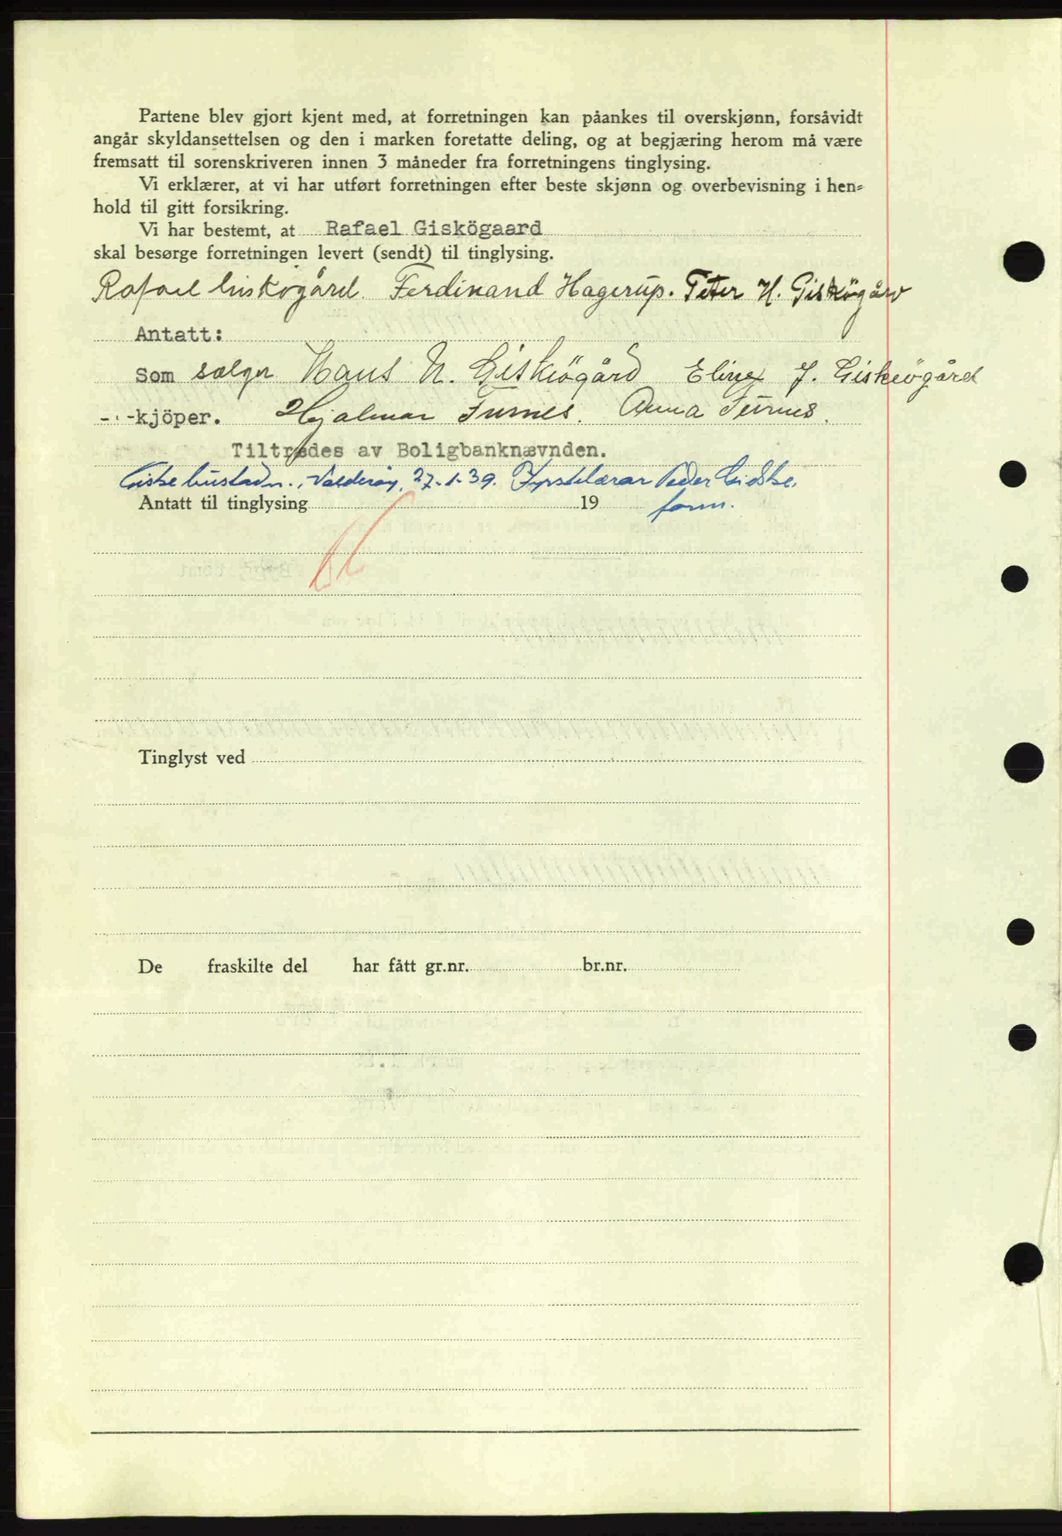 Partene blev gjort kjent med, at forretningen kan påankes til overskjønn, forsåvidt
angår skyldansettelsen og den i marken foretatte deling, og at begjæring herom må være
fremsatt til sorenskriveren innen 3 måneder fra forretningens tinglysing.
Vi erklærer, at vi har utført forretningen efter beste skjønn og overbevisning i hen-
hold til gitt forsikring.
Vi har bestemt, at Rafael Giskögaard
skal besørge forretningen levert (sendt) til tinglysing.
Rafael Giskögård Ferdinand Hagerup. Peter H. Giskögård
Antatt:
Som sælger Hans N. Giskeögård Eline J. Giskeögård
-"-kjöper. Hjalmar Furnes. Anna Furnes.
Tiltrædes av Boligbanknævnden.
Valderöy, 27-1-39. Peder Gidske.
Antatt til tinglysing 19 form.
Tinglyst ved
De fraskilte del har fått gr.nr. br.nr.